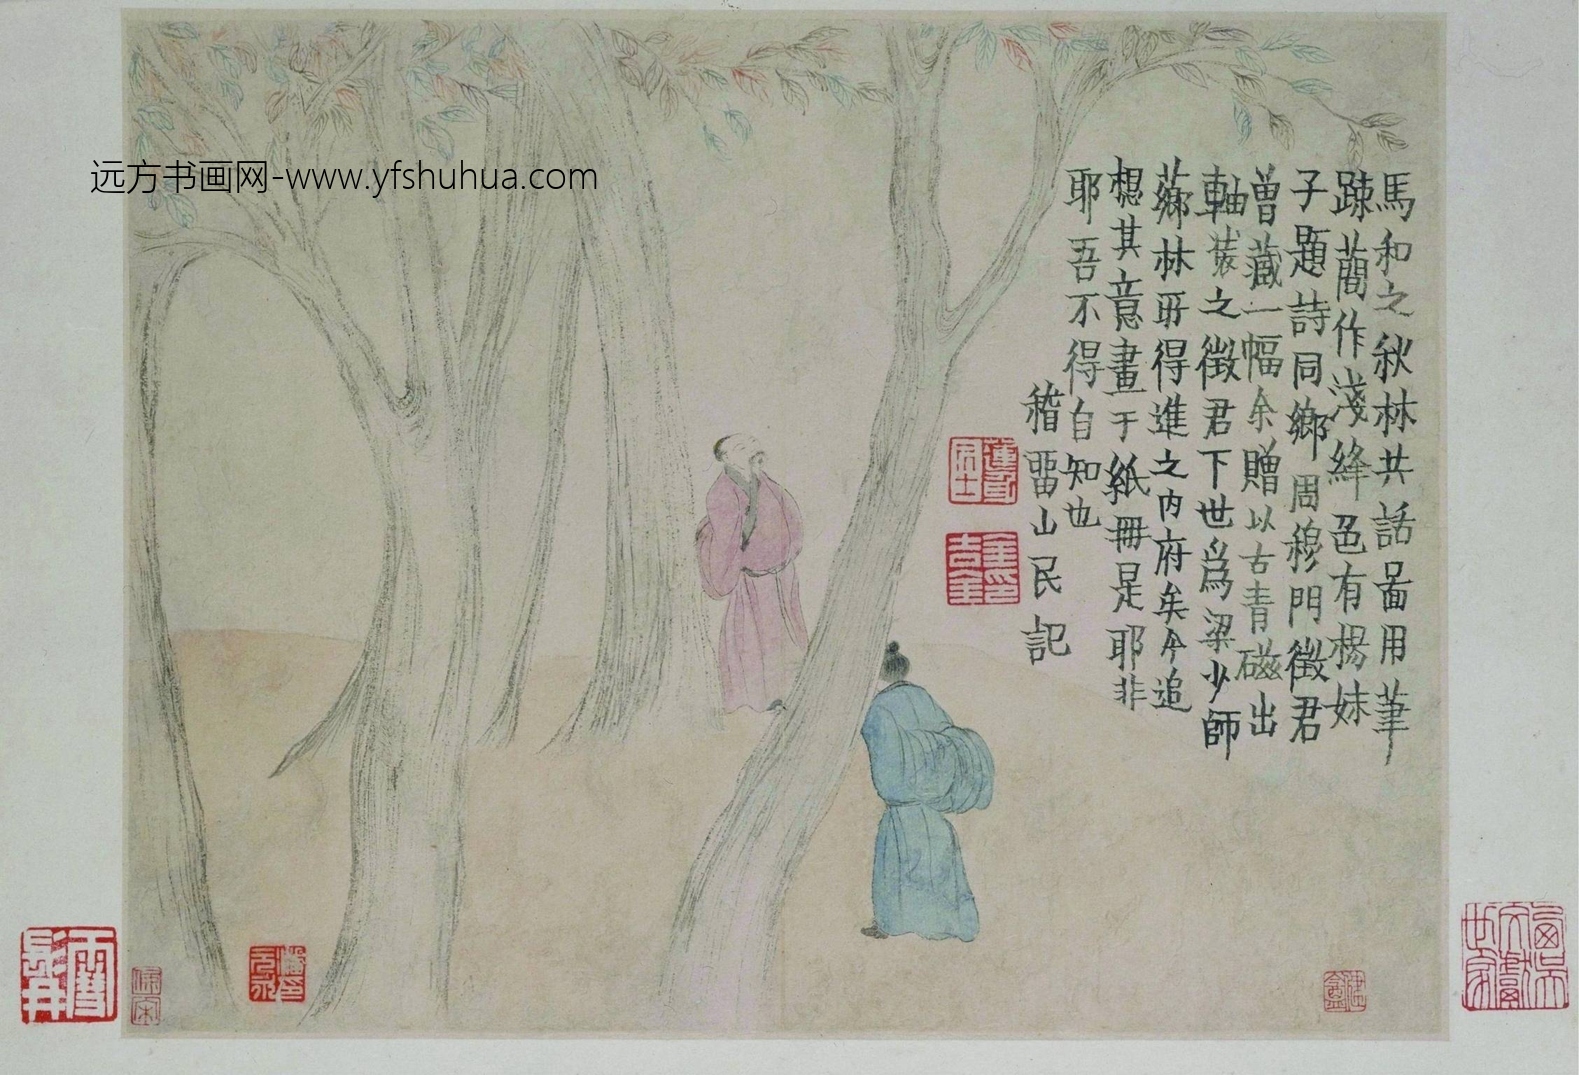 远方书画网-www.yfshuhua.com
馬和之秋林共話啚用筆
踈蕳作淺絳色有楊妹
子題詩同鄉周穆門徵君
曾藏一幅余贈以古青磁出
軸裝之徵君下世爲梁少師
薌林所得進之内府矣今追
想其意畫于紙冊是耶非
耶吾不得自知也
稽畱山民記
金吉金印